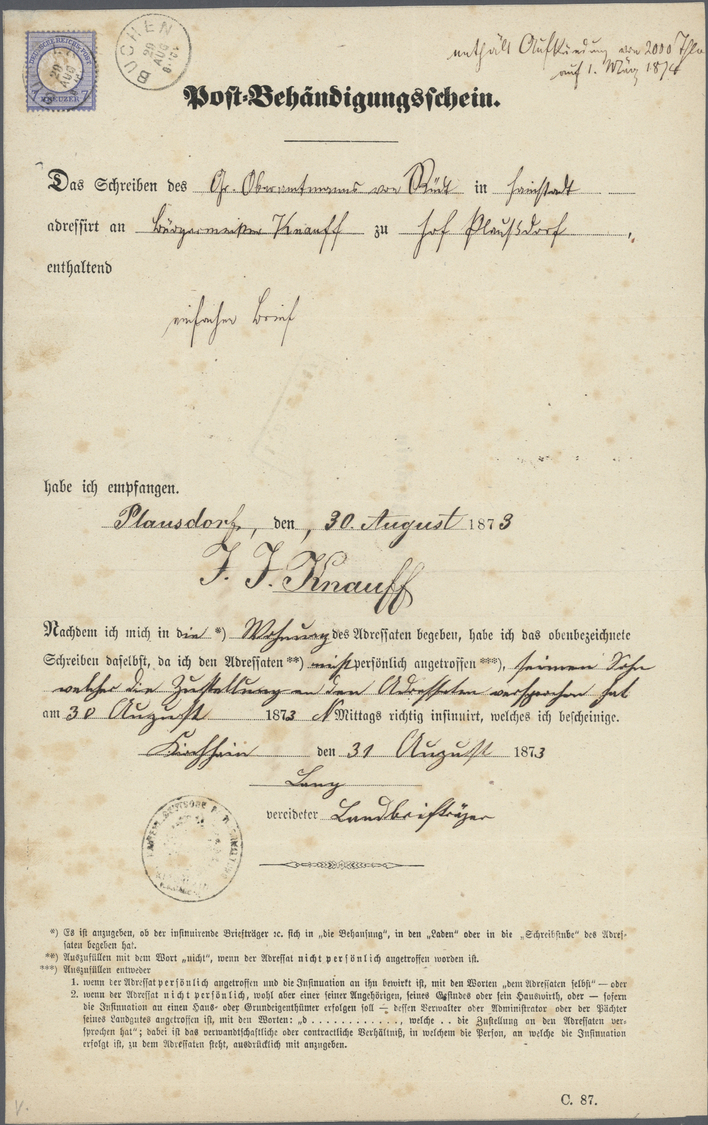 DEUTSCHE REICHS-POST
KREUZER 7
BUCHEN
29
AUG
enthält Aufkündung von 2000 Thlr
auf 1. März 1874
Post-Behändigungsschein.
Das Schreiben des Gr. Oberamtmanns von Rüdt in Hainstadt
adressirt an Bürgermeister Knauff zu Hof Plausdorf,
enthaltend
einfacher Brief
habe ich empfangen.
Plausdorf, den, 30. August 1873
J. J. Knauff
Nachdem ich mich in die *) Wohnung des Adressaten begeben, habe ich das obenbezeichnete
Schreiben daselbst, da ich den Adressaten **) nicht persönlich angetroffen ***), seinem Sohn
welcher die Zustellung an den Adressaten versprochen hat
am 30 August 1873 N Mittags richtig insinuirt, welches ich bescheinige.
Kirchhain den 31 August 1873
Lang
vereideter Landbriefträger
*) Es ist anzugeben, ob der insinuirende Briefträger ꝛc. sich in „die Behausung", in den „Laden" oder in die „Schreibstube" des Adres-
saten begeben hat.
**) Auszufüllen mit dem Wort „nicht", wenn der Adressat nicht persönlich angetroffen worden ist.
***) Auszufüllen entweder
1. wenn der Adressat persönlich angetroffen und die Insinuation an ihn bewirkt ist, mit den Worten „dem Adressaten selbst" — oder
2. wenn der Adressat nicht persönlich, wohl aber einer seiner Angehörigen, seines Gesindes oder sein Hauswirth, oder — sofern
die Insinuation an einen Haus- oder Grundeigenthümer erfolgen soll — dessen Verwalter oder Administrator oder der Pächter
seines Landgutes angetroffen ist, mit den Worten: „d . . . . . . . . . . . ., welche . . die Zustellung an den Adressaten ver-
sprochen hat"; dabei ist das verwandtschaftliche oder contractliche Verhältniß, in welchem die Person, an welche die Insinuation
erfolgt ist, zu dem Adressaten steht, ausdrücklich mit anzugeben.
C. 87.